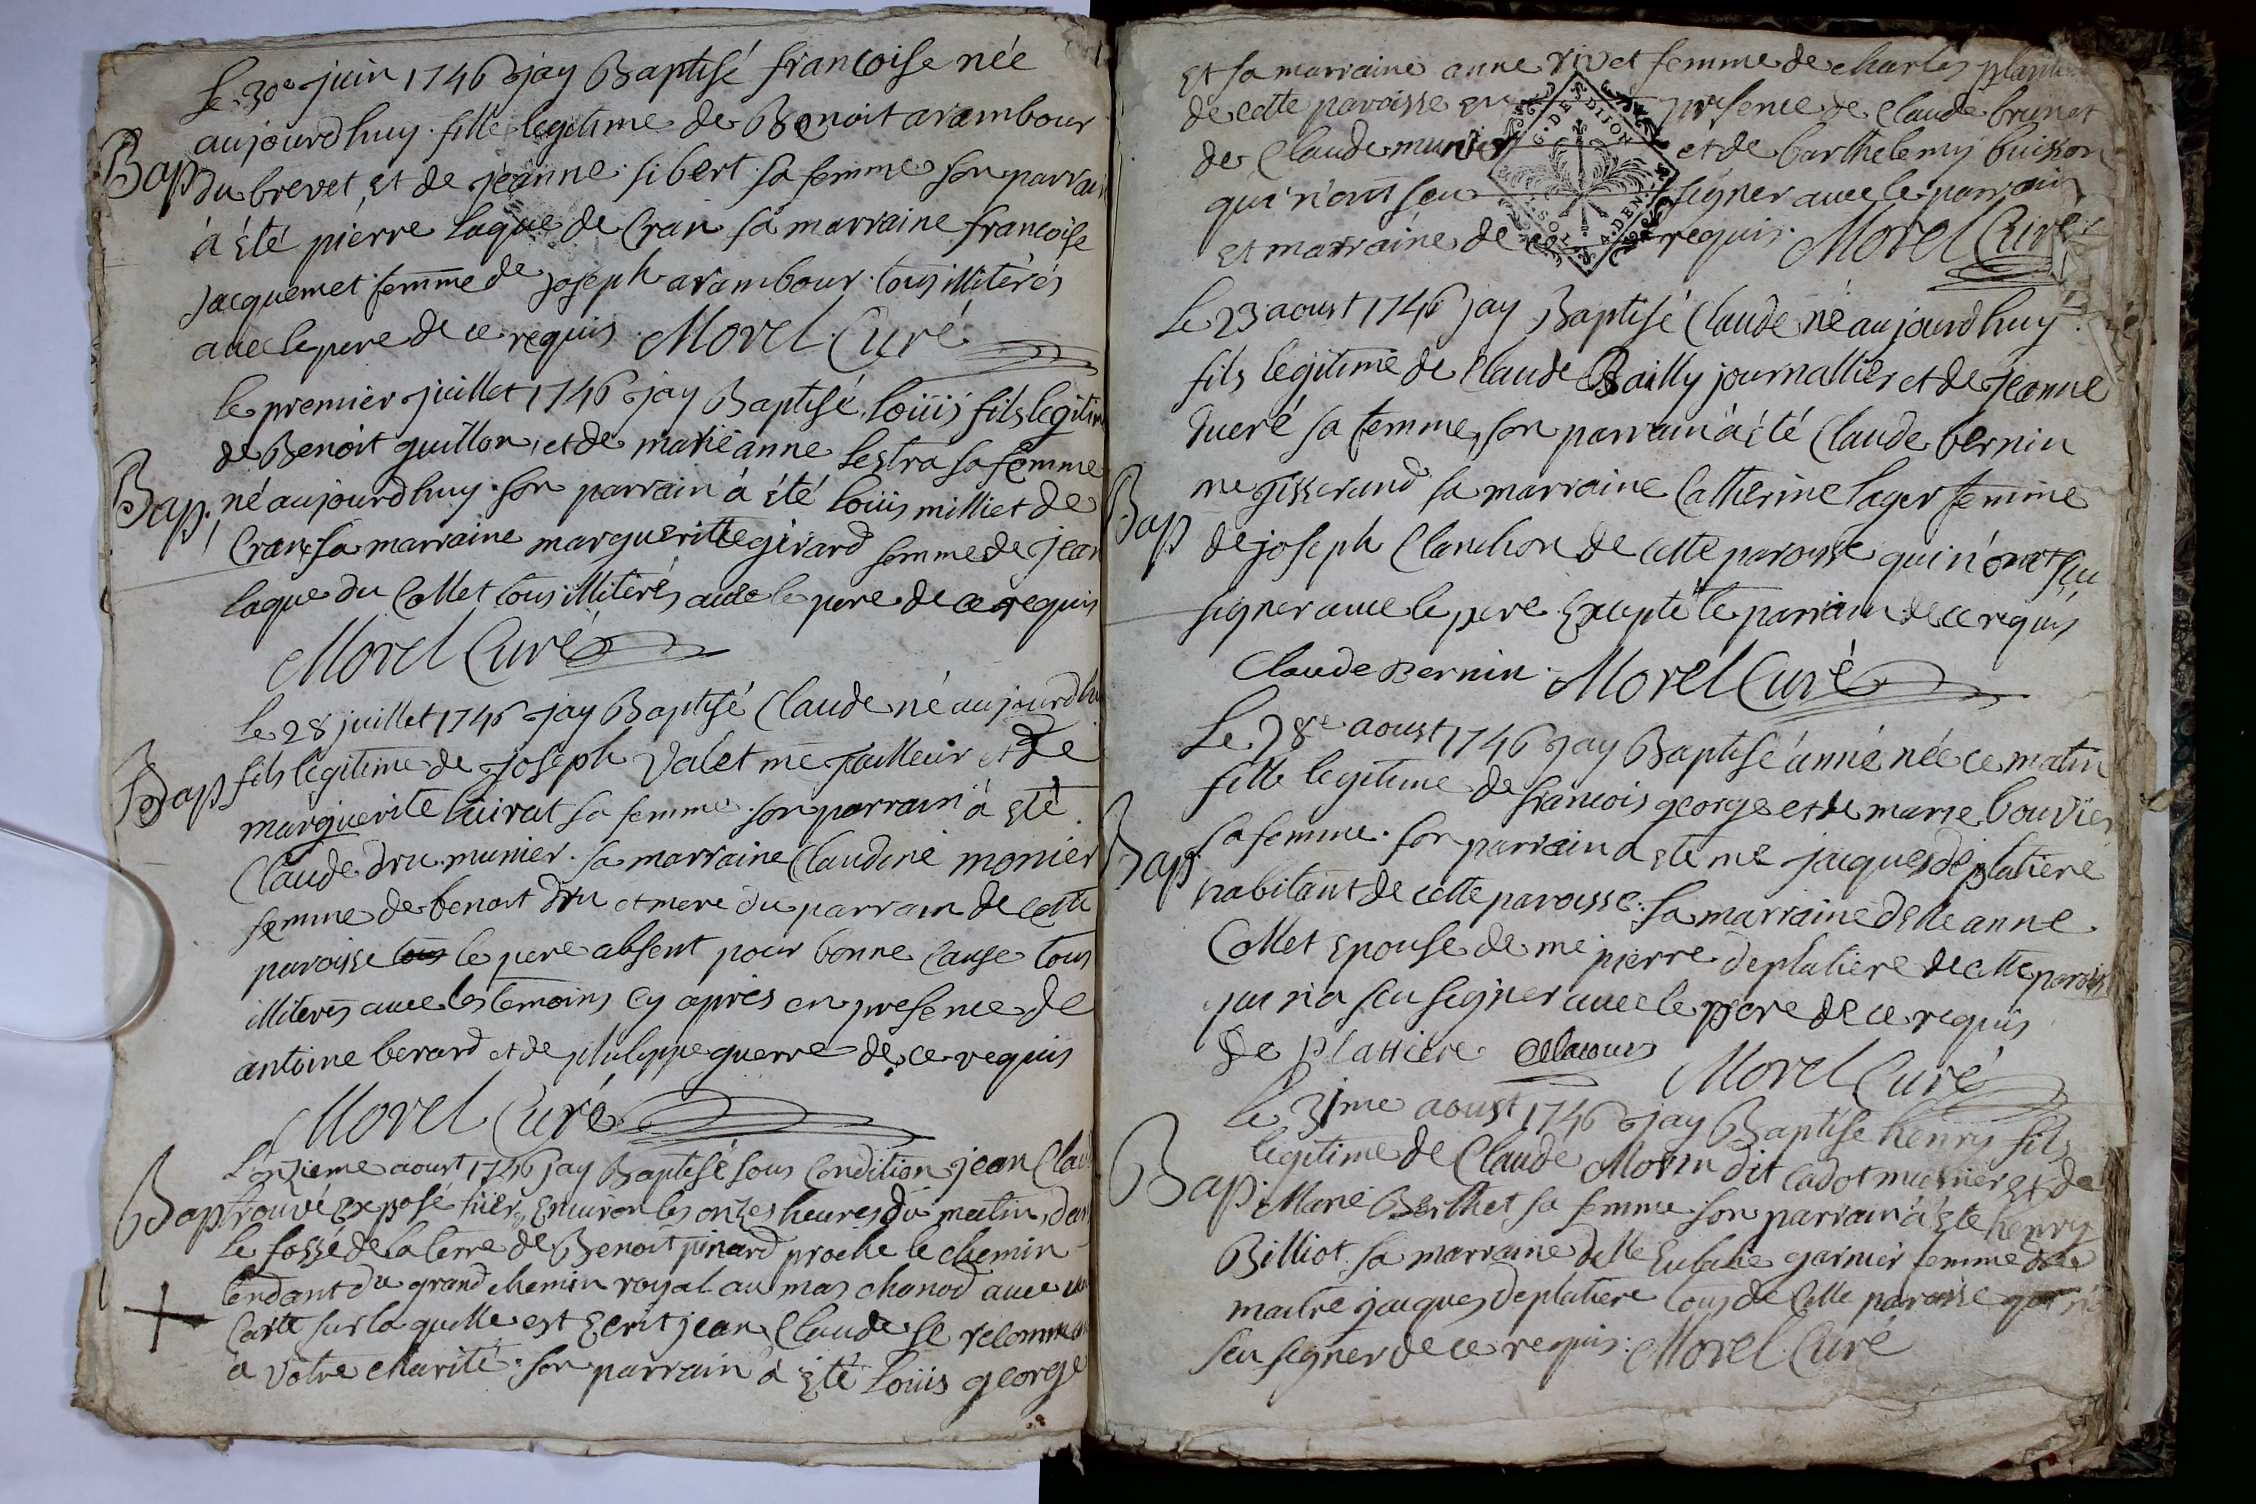 Le 30e juin 1746 jay Baptisé francoise née
aujourdhuy fille legitime de Benoit arambour
Bap du brevet et de jeanne sibert sa femme son parrain
à été pierre laque de Cran sa marraine francoise
jacquemet femme de joseph arambour tous illiterés
avec le pere de ce requis Morel Curé
le premier juillet 1746 jay Baptisé loüis fils legitime
de Benoit guillon et de marie anne lestra sa femme
Bap. né aujourdhuy son parrain à été loüis milliet de
Cran sa marraine margueritte girard femme de jean
laque du Collet tous illiterés avec le pere de ce requis
Morel Curé
le 28 juillet 1746 jay Baptisé Claude né aujourdhuy
Bap fils legitime de joseph Valet me tailleur et de
marguerite luirat sa femme son parrain à eté
Claude dru munier sa marraine Claudine monier
femme de benoit dru et mere du parrain de cette
paroisse le pere absent pour bonne cause tous
illiterés avec les temoins cy apres en presence de
antoine berard et de philippe guerre de ce requis
Morel Curé
L'onzieme aoust 1746 jay Baptisé sous condition jean Claude
Bap trouvé exposé hier environ les onzes heures du matin dans
le fossé de la terre de Benoit pinard proche le chemin
tendant du grand chemin royal au mas chanod avec une
carte sur la quelle est ecrit jean Claude se recommande
a votre charité son parrain à eté loüis george
Et sa marraine anne rivet femme de charles
de cette paroisse en presence de Claude brunet
de Claude munier et de barthelemy buisson
qui n'ont seu signer avec le parrain
et marraine de ce requis Morel Curé
G. DE DIJON
Le 23 aoust 1746 jay Baptisé Claude né aujourdhuy
fils legitime de Claude Bailly journallier et de jeanne
ducré sa femme, son parrain à été Claude bernin
me tisserand sa marraine Catherine lager femme
Bap de joseph Clanchon de cette paroisse qui n'ont sçu
signer avec le pere Excepté le parrain de ce requis
Claude Bernin Morel Curé
Le 28e aoust 1746 jay Baptisé anne née ce matin
fille legitime de francois george et de marie bouvier
Bap sa femme son parrain a eté me jacques deplatiere
habitant de cette paroisse. sa marraine delle anne
Collet Epouse de me pierre deplatiere de cette paroisse
qui n'a seu signer avec le pere de ce requis
De Plattiere Morel Curé
le 31me aoust 1746 jay Baptisé henry fils
legitime de Claude Morin dit cadot munier et de
Bap. Marie Berthet sa femme son parrain à eté henry
Billiot sa marraine delle Eulalie garnier femme de
maitre jacques deplatiere tous de cette paroisse qui n'a
seu signer de ce requis Morel Curé